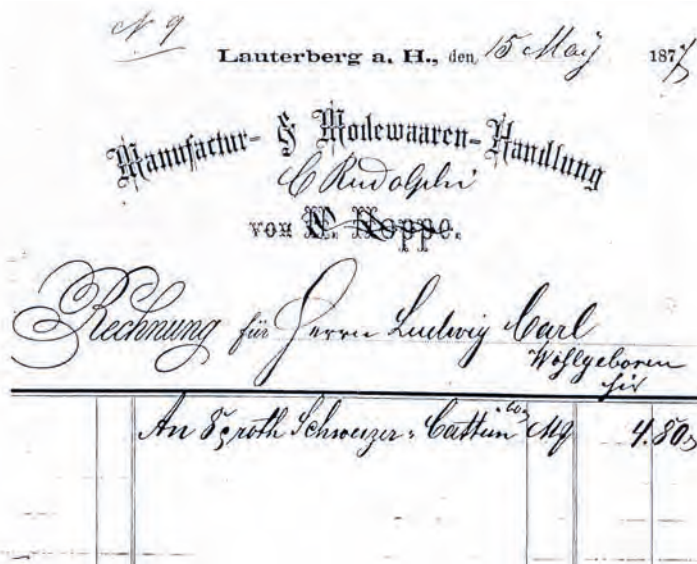 N 9
Lauterberg a. H., den 15 May 187
Manufactur- & Modewaaren-Handlung
C Rudolphi
von W. Hoppe.
Rechnung für Herrn Ludwig Carl
Wohlgeboren
hier
An 8 roth Schweizer-Cattun 60 M 4.80